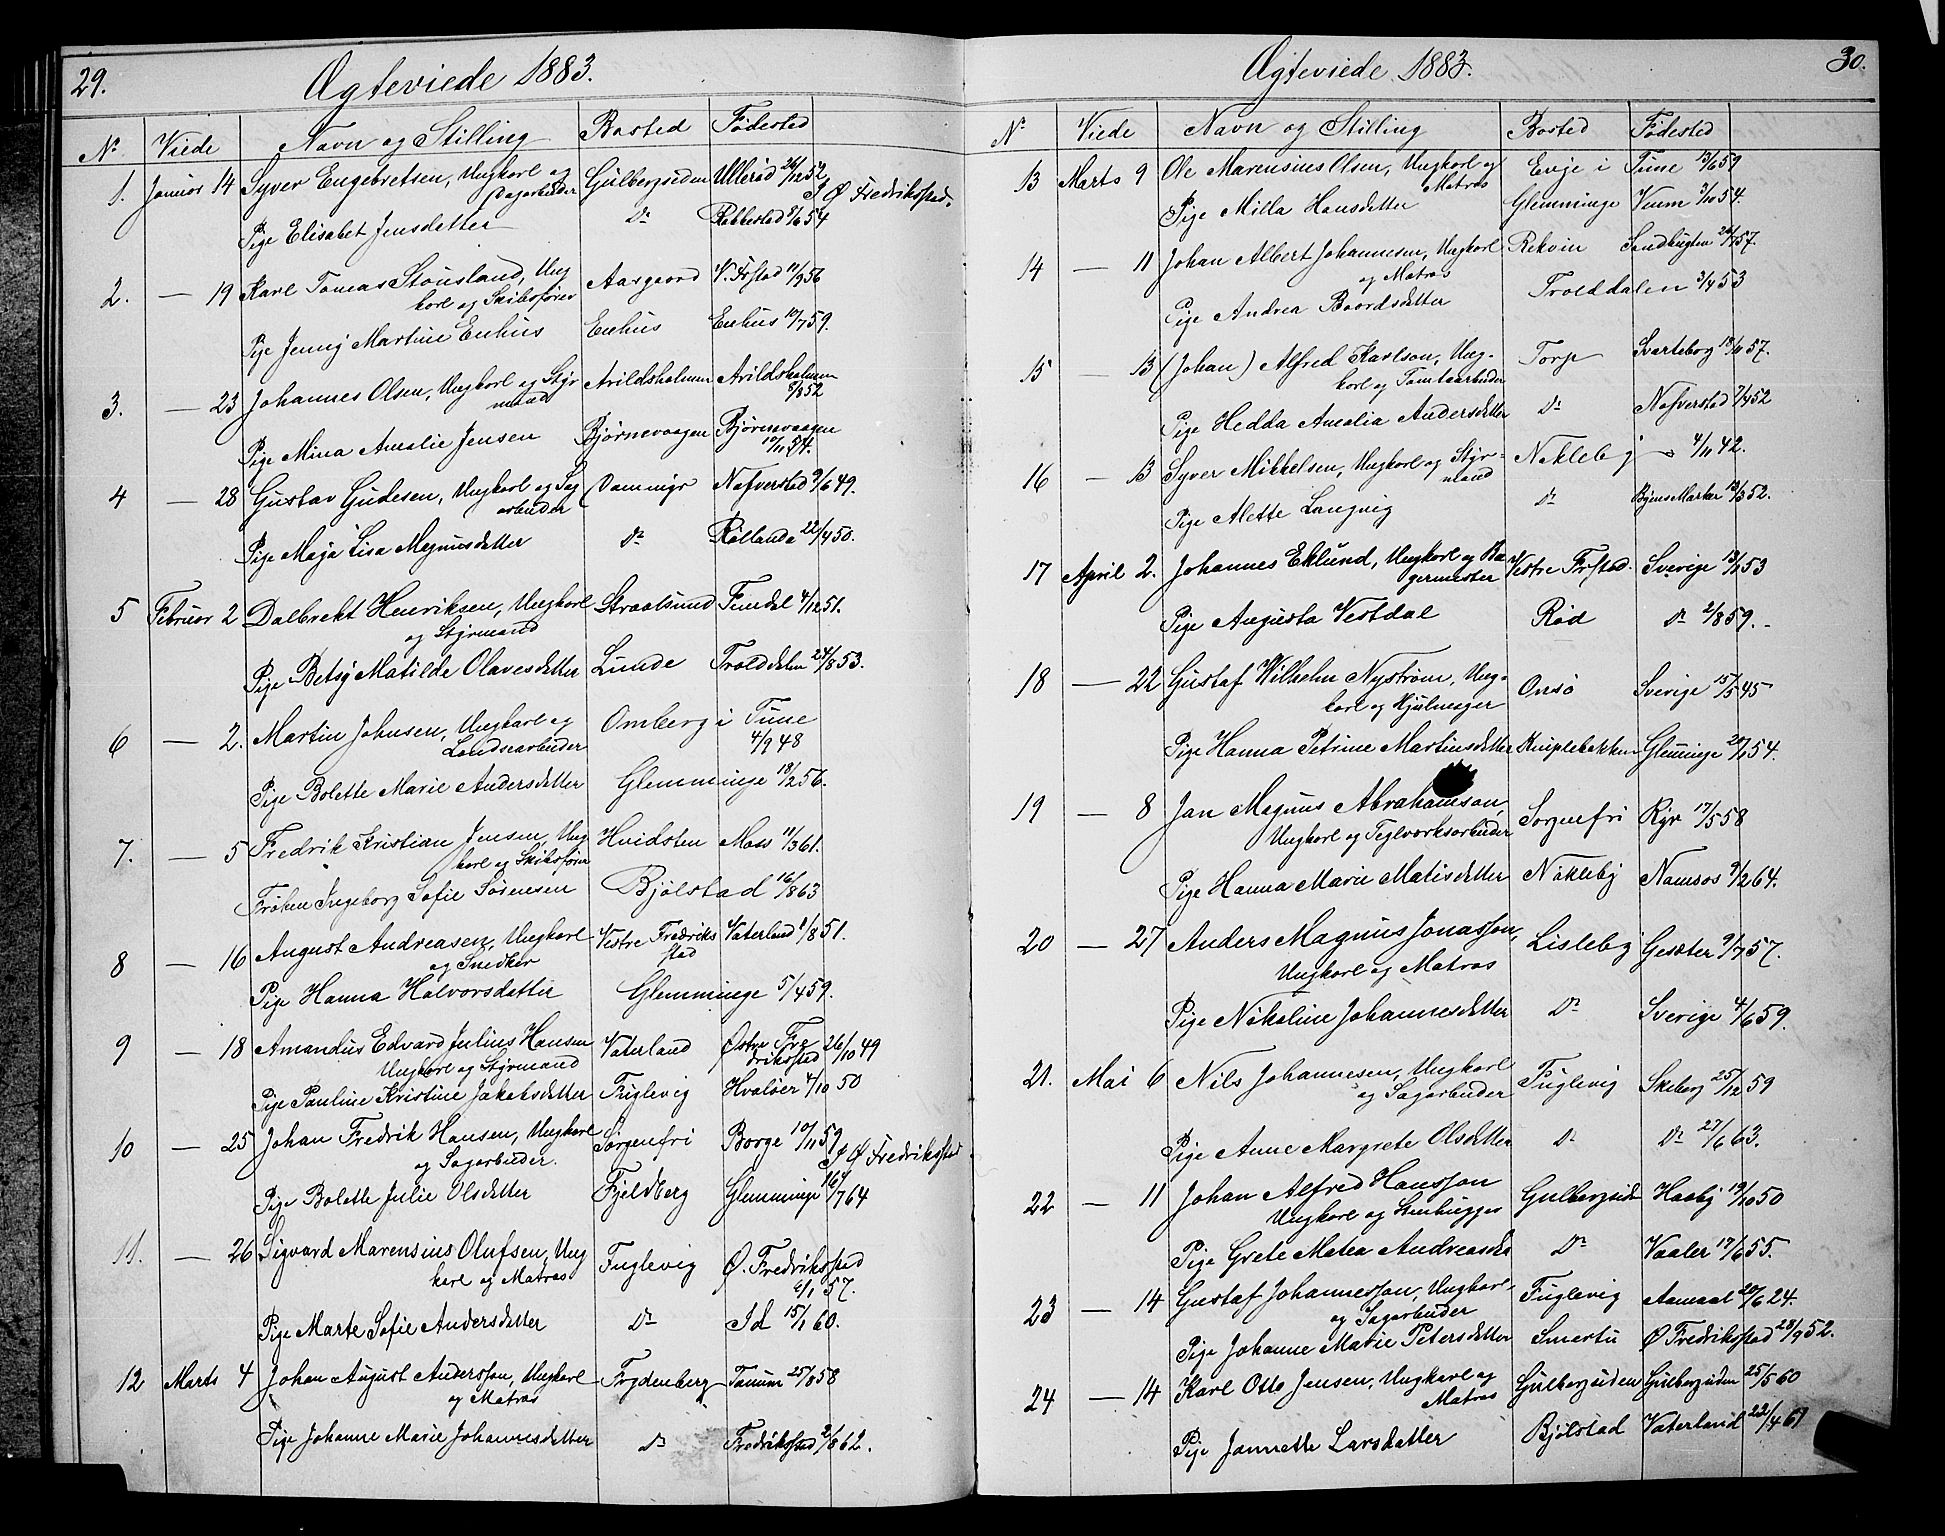 29.
Ægteviede 1883.
No Viede Navn og Stilling Bosted Fødested
1. Januar 14 Syver Engebretsen, Ungkarl og Gulbergseden Ullerød 26/12 52
Dagarbeider I Ø Fredrikstad.
Pige Elisabet Jensdatter Do Rakkestad 8/6 54
2. — 19 Karl Tomas Stousland, Ung Aasgaard V. Frstad 11/9 56
karl og Skibsfører
Pige Jenny Martine Enhus Enhus Enhus 10/7 59.
3. — 23 Johannes Olsen, Ungkarl og Styr Arildsholmen Arildsholmen
mand 8/8 52
Pige Mina Amalie Jensen Bjørnevaagen Bjørnevaagen
10/11 54.
4 — 28 Gustav Gudesen, Ungkarl og Sag Dammyr Nafverstad 9/6 49.
arbeider
Pige Maja Lisa Magnusdatter Do Røllanda 22/4 50.
5 Februar 2 Dalbrekt Henriksen, Ungkarl Straalsund Fundal 4/12 51.
og Styrmand
Pige Betsy Matilde Olavesdatter Lunde Trolddalen 24/8 53.
6 — 2. Martin Johnsen, Ungkarl og Omberg i Tune
Landarbeider 4/9 48
Pige Bolette Marie Andersdatter Glemminge 18/2 56.
7. — 5 Fredrik Kristian Jensen, Ung Hvidsten Moss 11/3 61.
karl og Skibsfører
Frøken Ingeborg Sofie Sørensen Bjølstad 16/8 63
8 — 16 August Andreasen, Ungkarl Vestre Fredriks Vaterland 1/8 51.
og Snedker stad
Pige Hanna Halvorsdatter Glemminge 5/4 59.
9 — 18 Amandus Edvard Julius Hansen Vaterland Østre Fre 26/10 49
Ungkarl og Styrmand drikstad
Pige Pauline Kristine Jakobsdatter Fuglevig Hvaløer 4/10 50
10 — 25 Johan Fredrik Hansen, Ungkarl Sorgenfri Borge 10/11 59
og Sagarbeider. I Ø Fredrikstad.
Pige Bolette Julie Olsdatter Fjeldberg Glemminge 16/7 64
11. — 26 Sigvard Marensius Olufsen, Ung Fuglevig Ø. Fredrikstad
karl og Matros 6/1 57.
Pige Marte Sofie Andersdatter Do Id 15/1 60.
12 Marts 4 Johan August Andersson, Ungkarl Frydenberg Tanum 25/8 58
og Matros
Pige Johanne Marie Johannesdatter Do Fredrikstad 2/8 62.
Ægteviede 1883.
30.
No Viede Navn og Stilling Bosted Fødested
13 Marts 9 Ole Marensius Olsen, Ungkarl og Evje i Tune 13/6 59
Matros
Pige Milla Hansdatter Glemminge Veum 3/10 54.
14 — 11 Johan Albert Johannesen, Ungkarl Rekvin Sandbugten 26/7 57.
og Matros
Pige Andrea Baardsdatter Trolddalen 3/4 53
15 — 13 (Johan) Alfred Karlson, Ung- Torp Svarteborg 18/11 57.
karl og Tomtearbeider
Pige Hedda Amalia Andersdatter Do Nafverstad 7/4 52
16 — 13 Syver Mikkelsen, Ungkarl og Styr- Nøkleby — 4/11 42.
mand
Pige Alette Langvig Do Bijens Marker 12/3 52.
17 April 2. Johannes Eklund, Ungkarl og Ba Vestre Frstad. Sverige 13/1 53
germester
Pige Augusta Vestdal Rød Do 2/8 59.-
18 — 22 Gustaf Wilhelm Nystrøm, Ung- Onsø Sverige 15/5 45
karl og Hjulmager
Pige Hanna Petrine Martinsdatter Kniplebakken Glemminge 20/1 54.
19 — 8 Jan Magnus Abrahamson, Sorgenfri Ryr 17/5 58
Ungkarl og Teglværksarbeider
Pige Hanna Marie Matisdatter Nøkleby Namsos 9/2 64.
20 — 27 Anders Magnus Jonasson, Lisleby Gesæter 9/7 57.
Ungkarl og Matros
Pige Nikoline Johannesdatter Do Sverige 4/6 59.
21. Mai 6 Nils Johannesen, Ungkarl Fuglevig Skeberg 25/12 59
og Sagarbeider
Pige Anne Margrete Olsdatter Do Do 27/6 63.
22 — 11 Johan Alfred Hansson Gulbergsiden Haaby 19/10 50
Ungkarl og Stenhugger
Pige Grete Matea Andreasda Do Vaaler 17/6 55.
23 — 14 Gustaf Johannesson, Ungkarl Fuglevig Aamaal 29/6 24.
og Sagarbeider
Pige Johanne Marie Petersdatter Smertu Ø Fredrikstad 28/9 52.
24 — 14 Karl Otto Jensen, Ungkarl og Gulbergsiden Gulbergsiden 25/5 60
Matros
Pige Jannette Larsdatter Bjølstad Vaterland 22/4 61